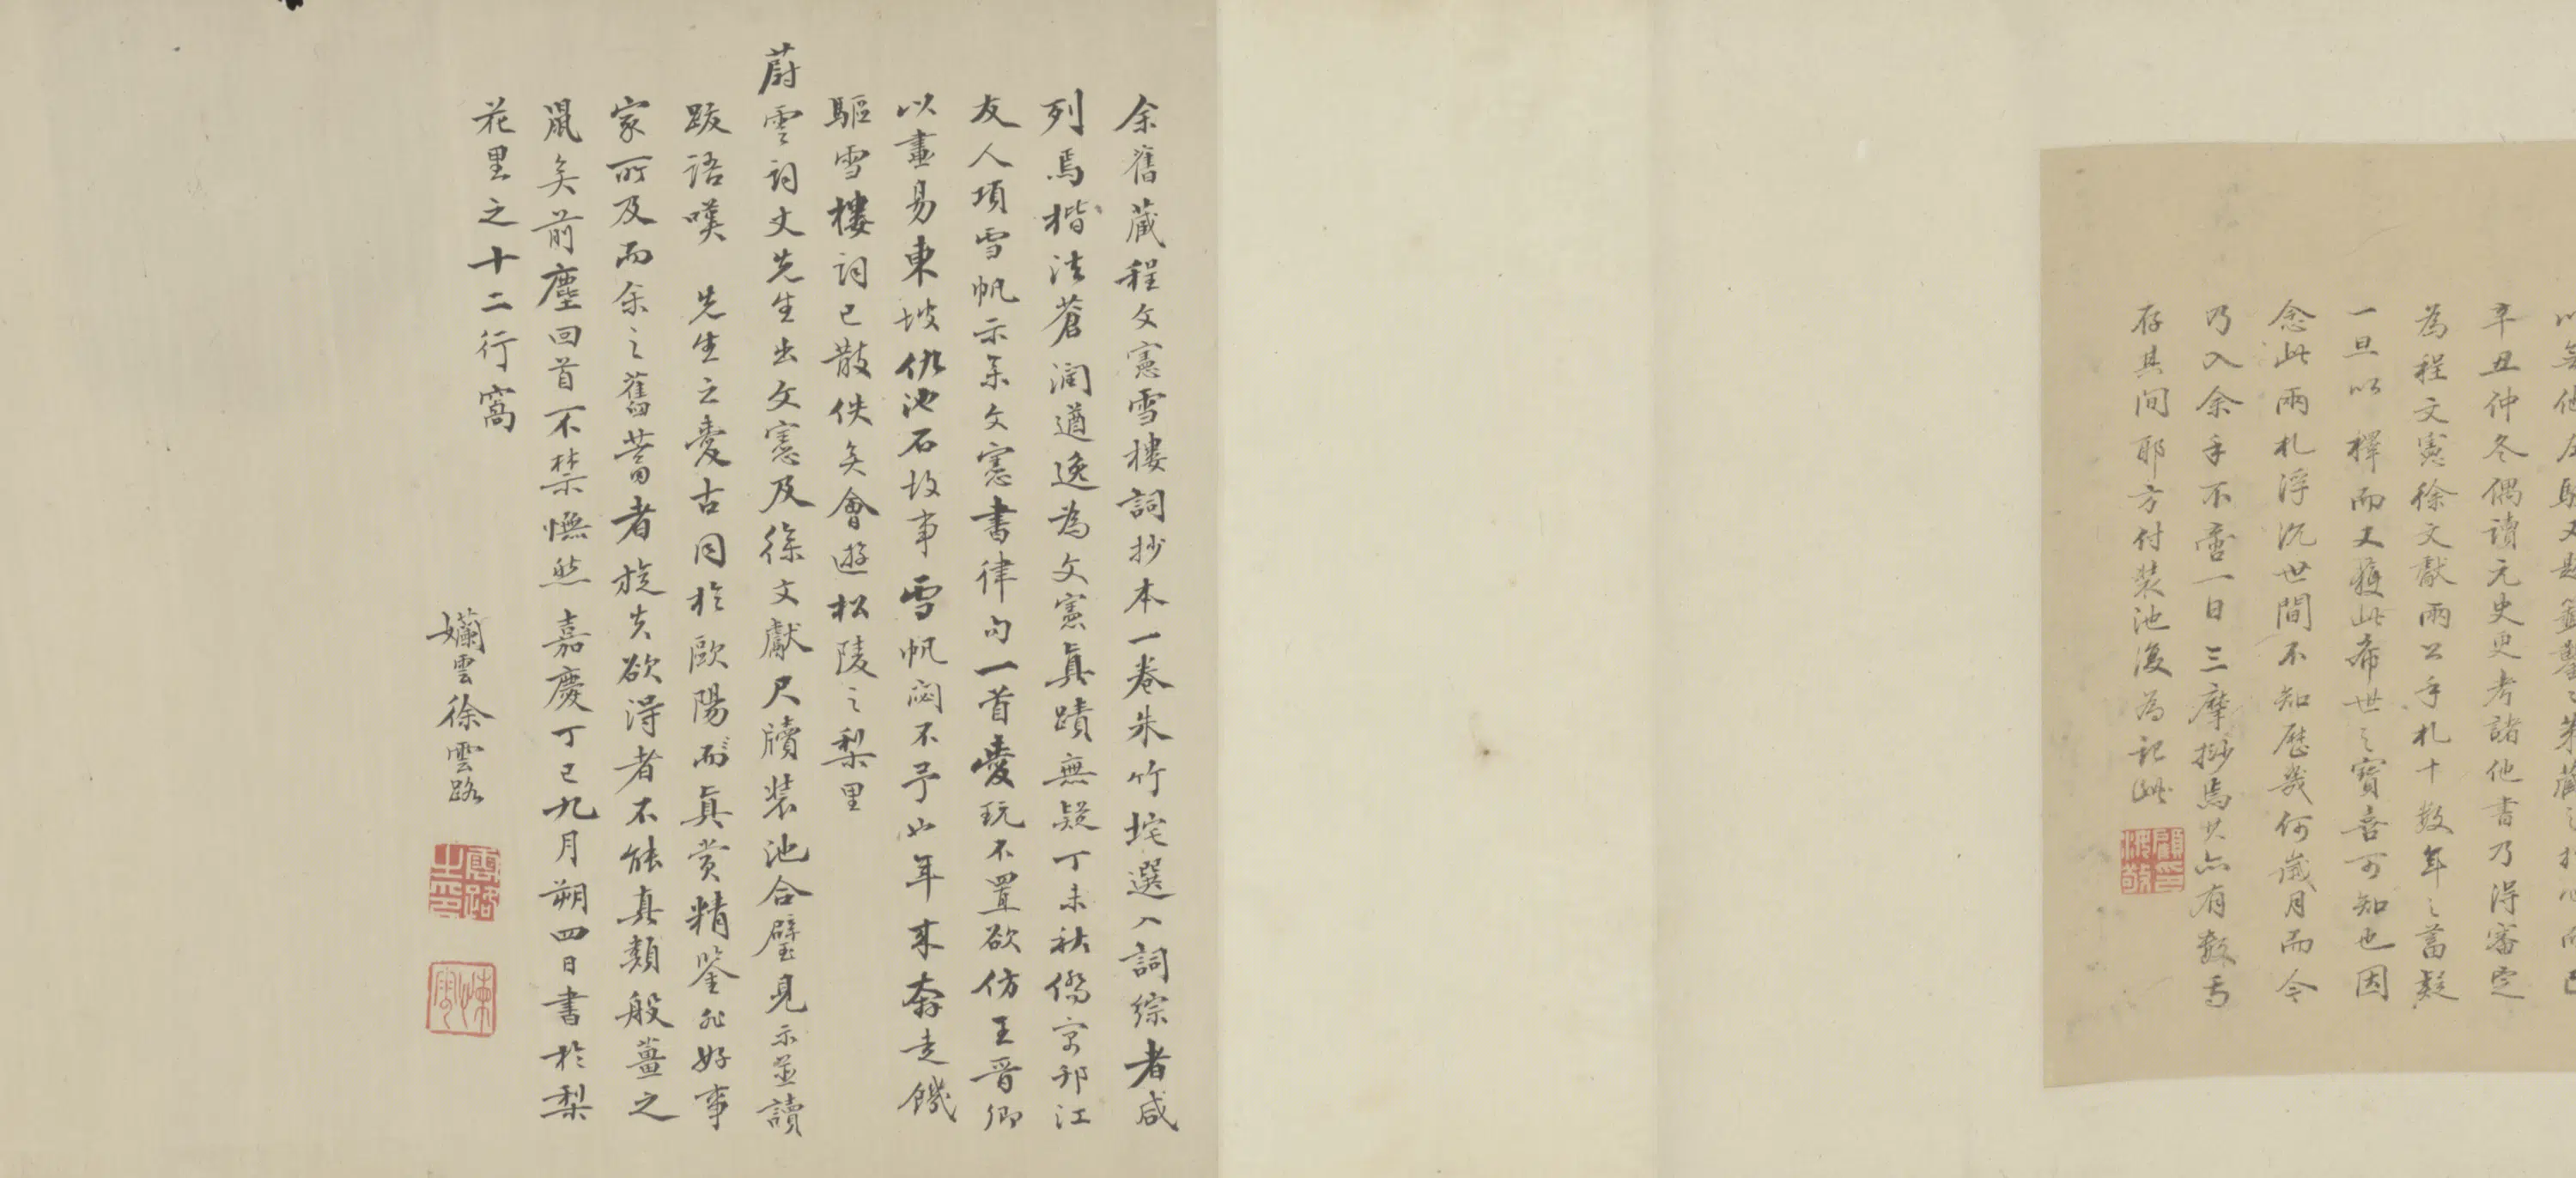 辛丑仲冬偶讀元史更考諸他書乃得審定
為程文憲徐文獻兩公手札十數年之蓄疑
一旦以釋而又獲此希世之寶喜可知也因
念此兩札浮沉世間不知歷幾何歲月而今
乃入余手不啻一日三摩挲焉其亦有數焉
存其間耶方付裝池漫為記此
余舊藏程文憲雪樓詞抄本一卷朱竹垞選入詞綜者咸
列焉楷法蒼潤遒逸為文憲真蹟無疑丁未秋僑寓邗江
友人項雪帆示余文憲書律句一首愛玩不置欲仿王晉卿
以畫易東坡仇池石故事雪帆閟不予比年來奔走饑
驅雪樓詞已散佚矣會遊松陵之梨里
蔚雲詞丈先生出文憲及徐文獻尺牘裝池合璧見示並讀
跋語嘆 先生之愛古同於歐陽而真賞精鑒非好事
家所及而余之舊蓄者旋失欲得者不能真類般薑之
鼠矣前塵回首不禁憮然嘉慶丁巳九月朔四日書於梨
花里之十二行窩
孏雲徐雲路
雲路之印